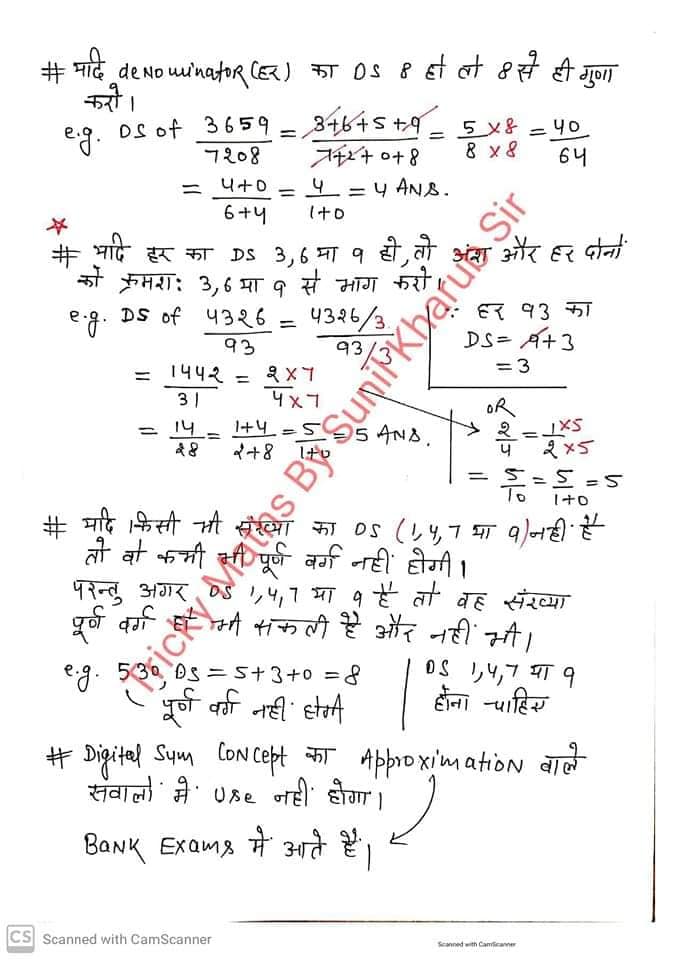 # यदि denominator (हर) का DS 8 हो तो 8 से ही गुणा
करो।
e.g. DS of 3659/7208 = 3+6+5+9/7+2+0+8 = 5×8/8×8 = 40/64
= 4+0/6+4 = 4/1+0 = 4 ANS.
# यदि हर का DS 3,6 या 9 हो, तो अंश और हर दोनों
को क्रमश: 3,6 या 9 से भाग करो।
e.g. DS of 4326/93 = 4326/3 / 93/3
∵ हर 93 का
DS = 9+3
= 3
= 1442/31 = 2×7/4×7
= 14/28 = 1+4/2+8 = 5/1+0 = 5 ANS.
OR
2/4 = 1×5/2×5
= 5/10 = 5/1+0 = 5
# यदि किसी भी संख्या का DS (1,4,7 या 9) नहीं है
तो वो कभी भी पूर्ण वर्ग नहीं होगी।
परन्तु अगर DS 1,4,7 या 9 है तो वह संख्या
पूर्ण वर्ग हो भी सकती है और नहीं भी।
e.g. 530, DS = 5+3+0 = 8
पूर्ण वर्ग नहीं होगी
DS 1,4,7 या 9
होना चाहिए
# Digital Sum Concept का Approximation वाले
सवालो मे Use नहीं होगा।
BANK EXAMS मे आते हैं।
Tricky Maths By Sunil Kharub Sir
CS Scanned with CamScanner
Scanned with CamScanner